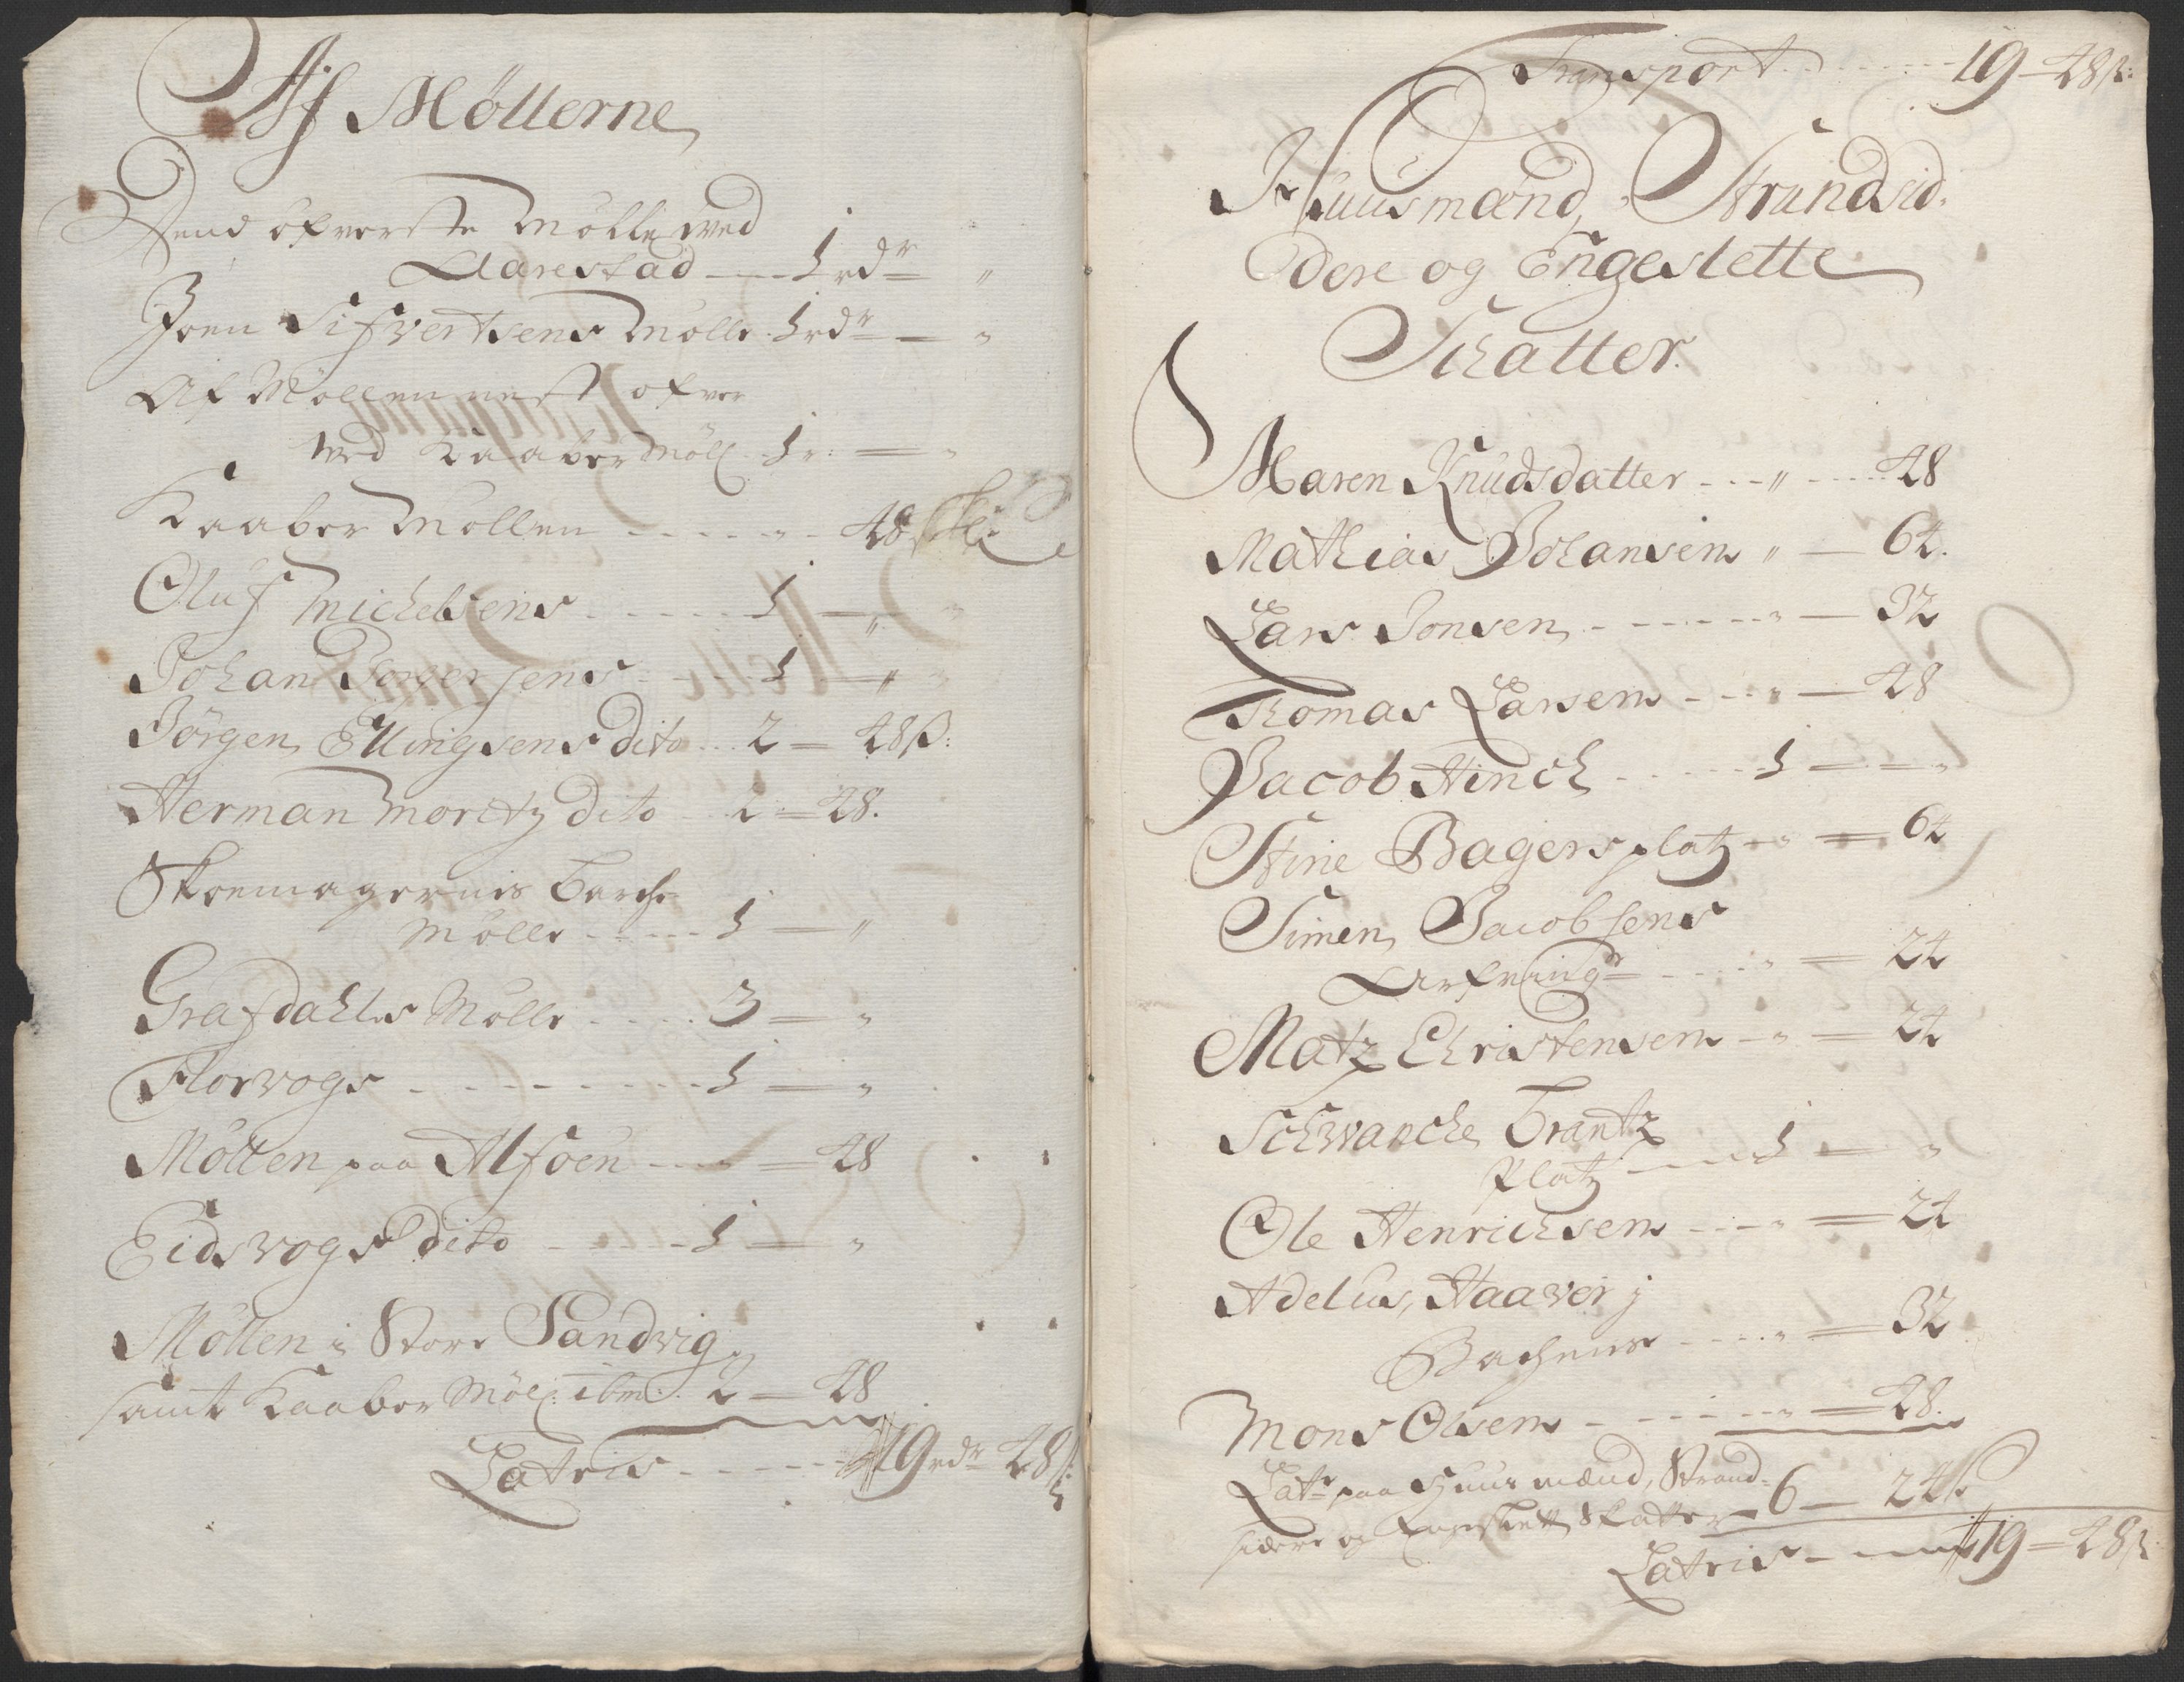 Af Møllerne
Dend øfverste Mølle ved
Aarestad ---- 1 rdr "
Joen Sifvertsens Mølle . 1 rdr — "
Af Møllen nest ofver
ved Kaaber Møll. 1 r: = "
Kaaber Møllen ------ 48 sk:
Oluf Michelsens ------ 1 — "
Johan Torgersens ----- 1 — "
Jørgen Ellingsens dito .. 2 — 48 ß:
Herman Moritz dito .. 2 = 48.
Skoemagernis Barche
Mølle ---- 1 — "
Grafdahls Mølle ---- 3 — "
Florvogs --------- 1 — "
Møllen paa Alføen ---- — 48
Eidsvogs dito ----- 1 — "
Møllen i Store Sandvig
samt Kaaber Møl: ibm: . 2 — 48
Lateris ----- 19 rdr 48 ß:
Transport ------- 19 — 48 ß:
Huusmænd, Strandsid-
dere og Engeslette
Schatter.
Maren Knudsdatter --- " ---- 48
Mathias Johansen " — 64.
Lars Jonsen ------ " — 32
Thomas Larsen --- " — 48
Jacob Hinch ----- 1 — "
Stine Bagers platz -- " = 64
Simen Jacobsens
Arfving: --- " = 24
Matz Christensen - " = 24
Schwanche Frantz
platz --- 1 — "
Ole Henrichsen ---- " = 24
Adelus, Haaver j
Bachens ---- " = 32
Mons Olsen ------ " = 48.
Latr paa Huusmænd, Strand-
sidere og Engeslett Skatter - 6 — 24 ß
Lateris - --- 19 — 48 ß